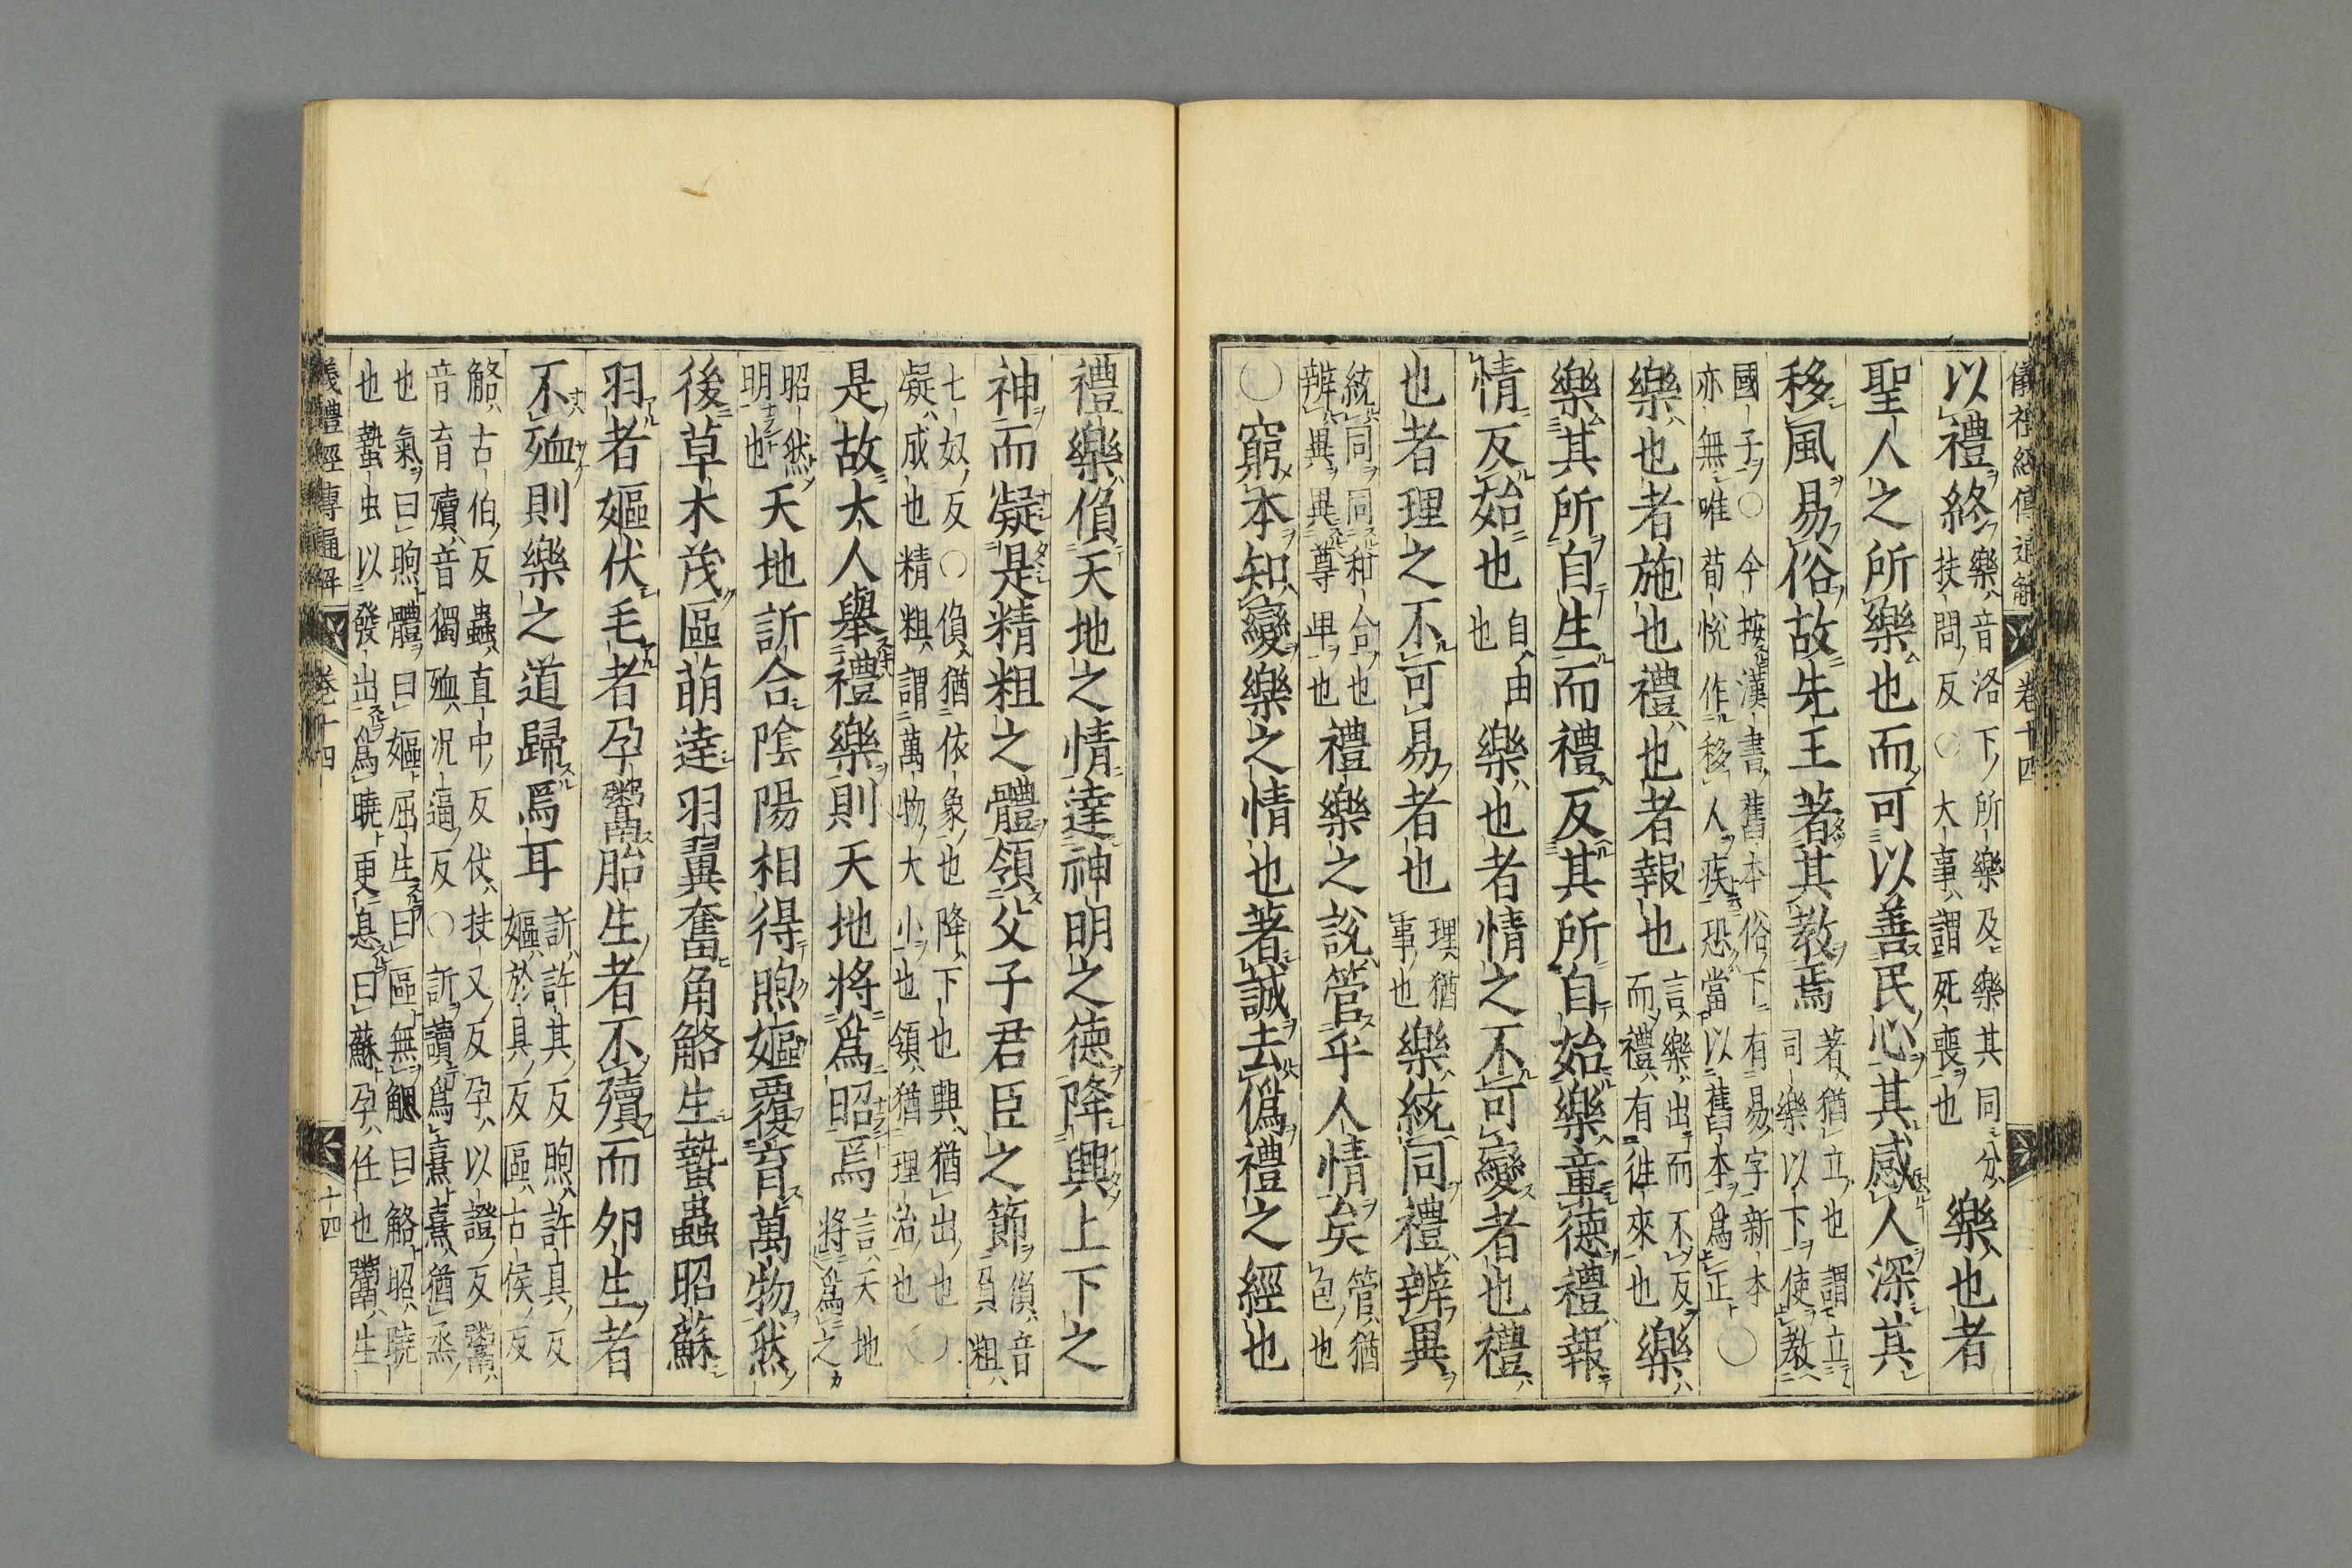 儀禮經傳通解 卷十四
以禮終樂音洛下所樂及樂其同分扶問反○大事謂死喪也樂也者
聖人之所樂也而可以善民心其感人深其
移風易俗故先王著其教焉著猶立也謂立司樂以下使教
國子○今按漢書舊本俗下有易字新本亦無唯荀悅作移人疾恐當以舊本爲正○
樂也者施也禮也者報也言樂出而不反而禮有徃來也樂
樂其所自生而禮反其所自始樂章德禮報
情反始也自由也樂也者情之不可變者也禮
也者理之不可易者也理猶事也樂統同禮辨異
統同同和合也辨異異尊卑也禮樂之說管乎人情矣管猶包也
○窮本知變樂之情也著誠去僞禮之經也
禮樂偩天地之情達神明之德降興上下之
神而凝是精粗之體領父子君臣之節偩音負粗
七奴反○偩猶依象也降下也興猶出也凝成也精粗謂萬物大小也領猶理治也○
是故大人舉禮樂則天地將爲昭焉言天地將爲之
昭然明也天地訢合陰陽相得煦嫗覆育萬物然
後草木茂區萌達羽翼奮角觡生蟄蟲昭蘇
羽者嫗伏毛者孕鬻胎生者不殰而卵生者
不殈則樂之道歸焉耳訢許其反煦許具反嫗於具反區古侯反
觡古伯反蟲直中反伏扶又反孕以證反鬻音育殰音獨殈況逼反○訢讀爲熹熹猶烝
也氣曰煦體曰嫗屈生曰區無䚡曰觡昭曉也蟄虫以發出爲曉更息曰蘇孕任也鬻生
儀禮經傳通解 卷十四 十四